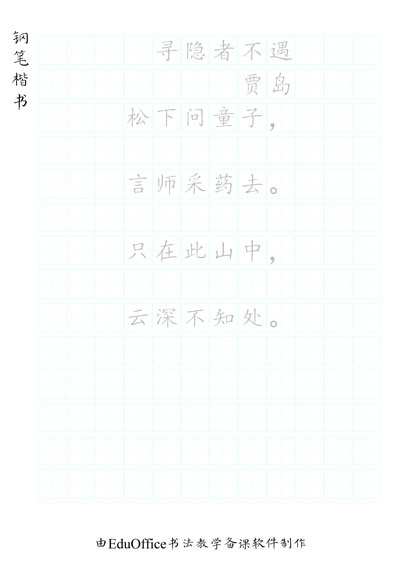 钢笔楷书
寻隐者不遇
贾岛
松下问童子，
言师采药去。
只在此山中，
云深不知处。
由EduOffice书法教学备课软件制作